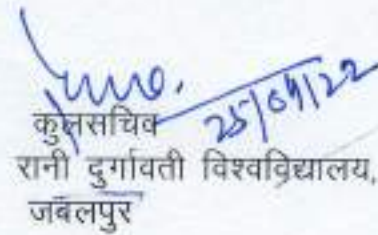 25/04/22
कुलसचिव
रानी दुर्गावती विश्वविद्यालय,
जबलपुर